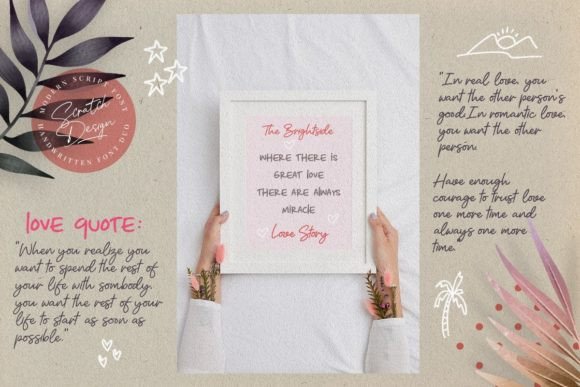 MODERN SCRIPT FONT
Scratch
Design
HANDWRITTEN FONT DUO
LOVE QUOTE:
"When you realize you
want to spend the rest of
your life with sombody,
you want the rest of your
life to start as soon as
possible."
The Brightside
WHERE THERE IS
GREAT LOVE
THERE ARE ALWAYS
MIRACLE
Love Story
"In real love, you
want the other person's
good. In romantic love,
you want the other
person.
Have enough
courage to trust love
one more time and
always one more
time."